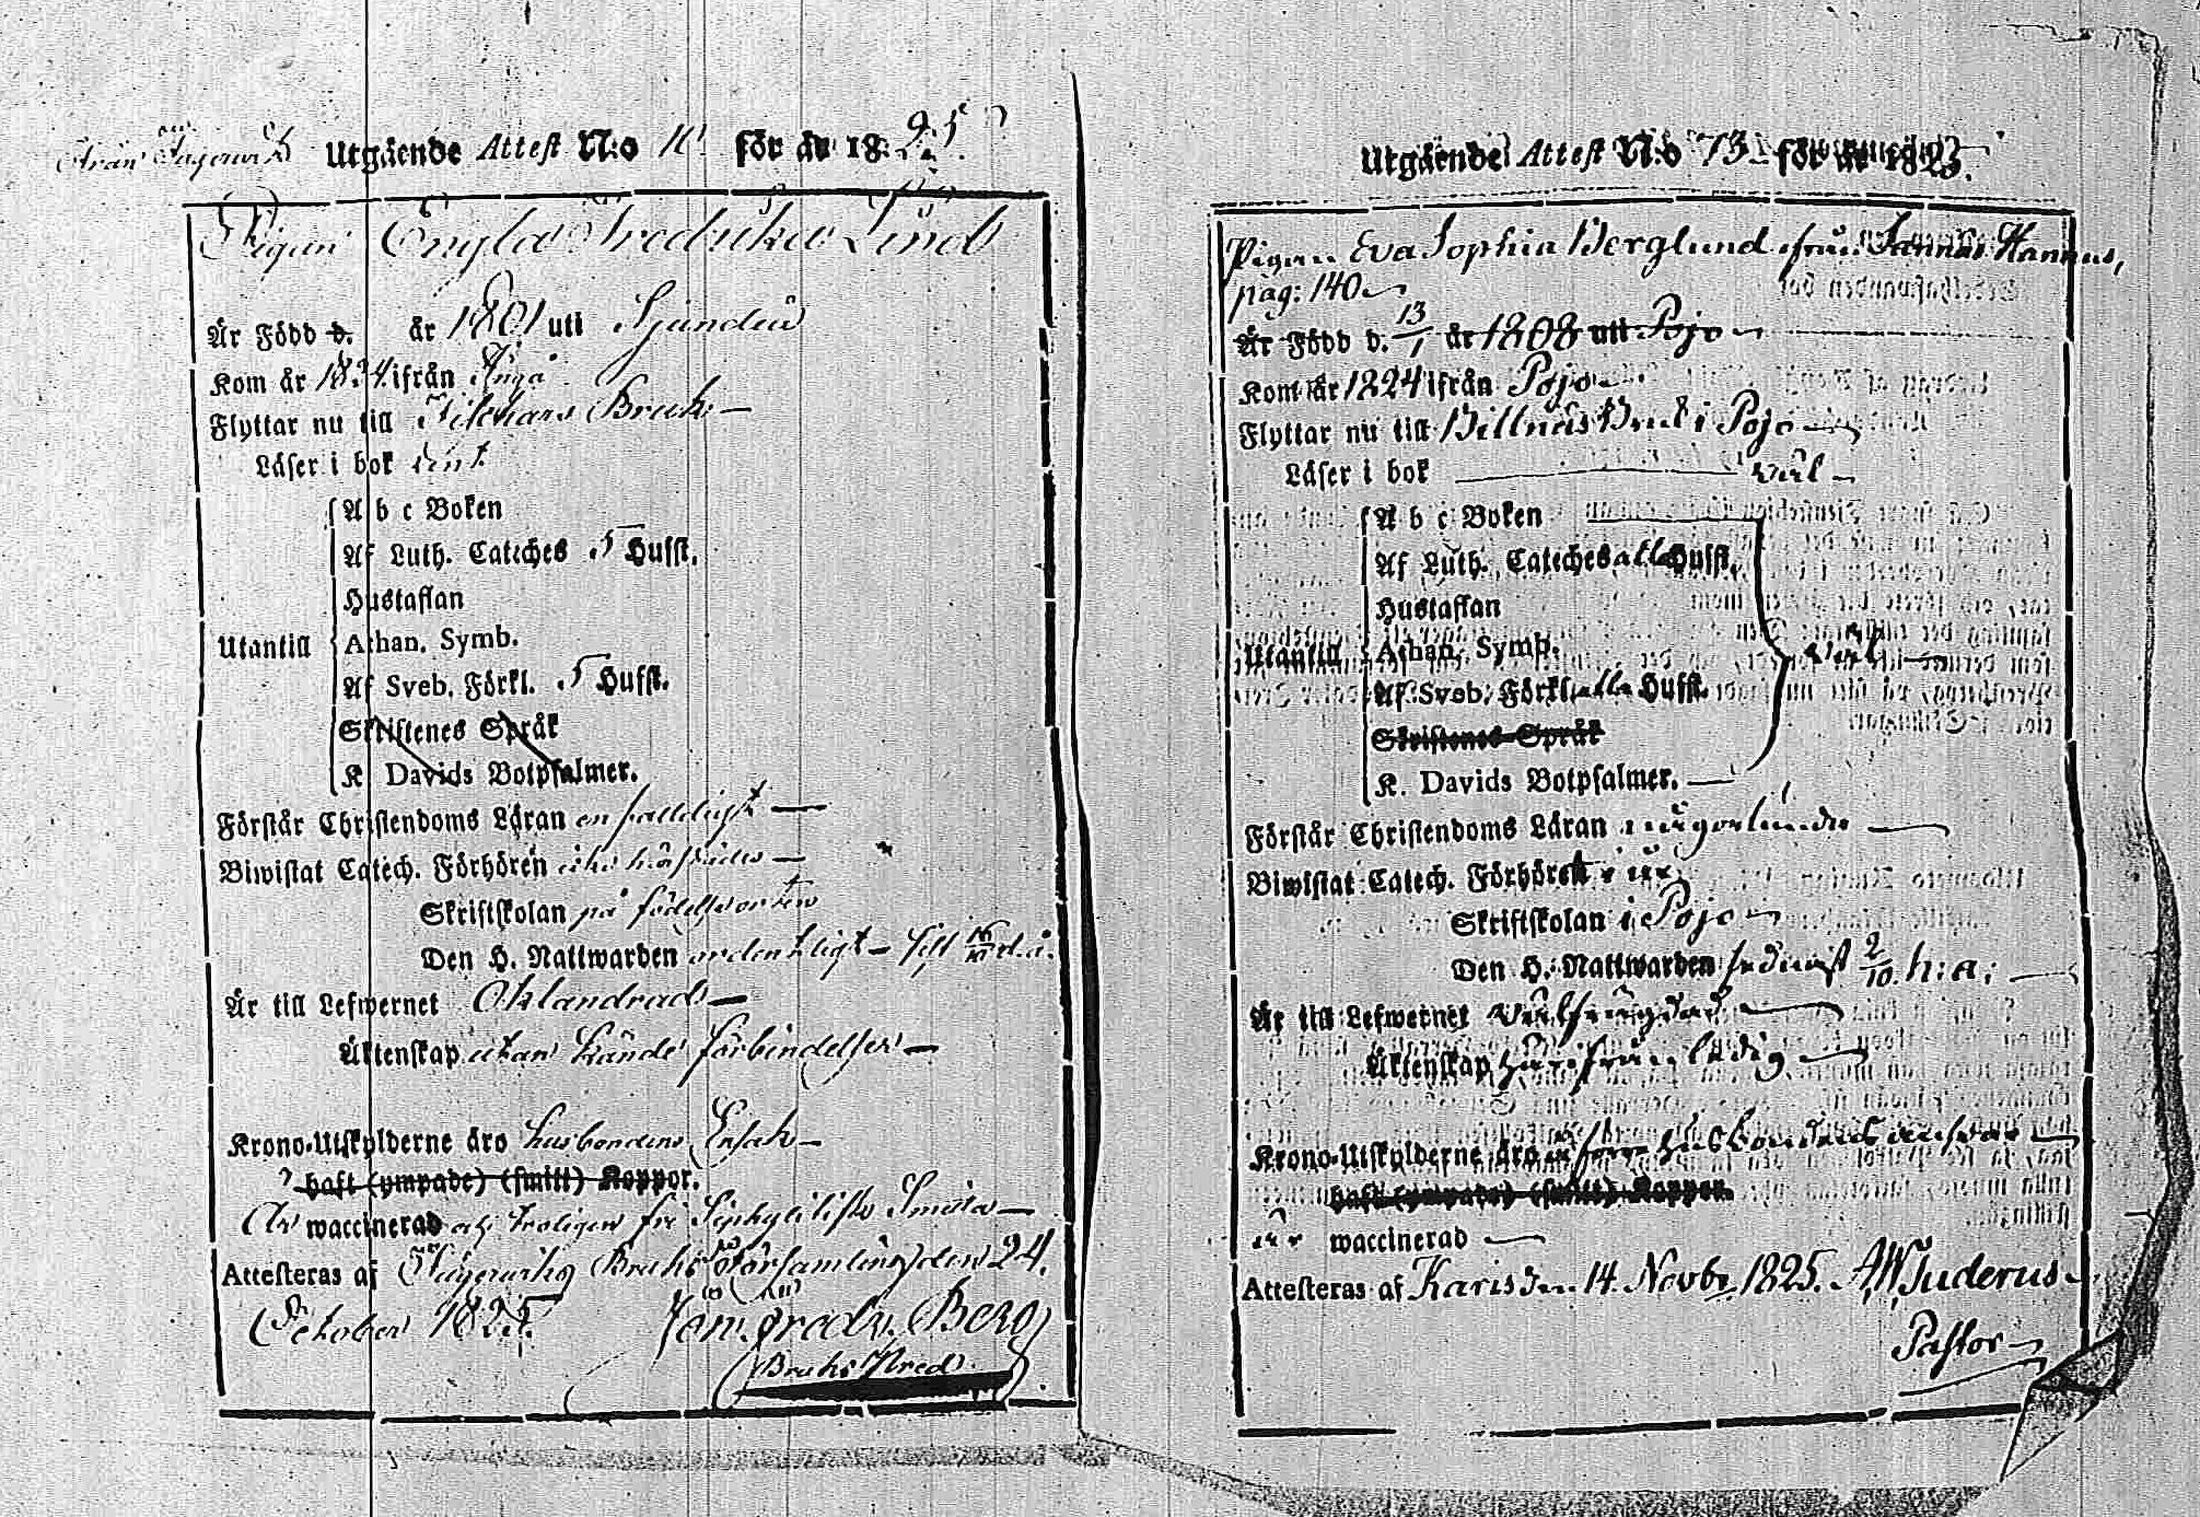 från Fagervik Utgående Attest N:o 11 för år 1825.
Pigan Engla Fredrika Lind
Är Född d. år 1801 uti Sjundeå
Kom år 1824 ifrån Ingå
Flyttar nu till Bruk
Läser i bok rent
Utantill
A b c Boken
Af Luth. Cateches 5 Hufst.
Hustaflan
Athan. Symb.
Af Sveb. Förkl. 5 Hufst.
Skriftenes Språk
K Davids Botpsalmer.
Förstår Christendoms Läran enfalldigt
Biwistat Catech. Förhören
Skriftskolan på födelseorten
Den H. Nattwarden ordentligt sist 16/10 d. å.
Är till Lefwernet Oklandrad
Äktenskap utan kände förbindelser
Krono-Utskylderne äro husbondens Ensak
haft (ympade) (smitt) Koppor.
Är waccinerad och troligen fri Siphylitisk Smitta
Attesteras af Fagerwiks Bruks Församling den 24.
October 1825.
Fredr. Berg
Bruks Pred.
Utgående Attest N:o 73 för år 1825.
Pigan Eva Sophia Berglund ifrån Hannus,
pag: 140
Är Född d. 13/1 år 1808 uti Pojo
Kom år 1824 ifrån Pojo
Flyttar nu till Billnäs Bruk i Pojo
Läser i bok wäl
Utantill
A b c Boken
Af Luth. Cateches alla Hufst.
Hustaflan
Athan. Symb.
Af Sveb. Förkl. alla Hufst.
wäl
Skriftenes Språk
K. Davids Botpsalmer.
Förstår Christendoms Läran någorlunda
Biwistat Catech. Förhöret i år
Skriftskolan i Pojo
Den H. Nattwarden sednast 2/10. h: a:
Är till Lefwernet wälfrägdad
Äktenskap härifrån ledig
Krono-Utskylderne äro för husbondens answar
haft (ympade) (smitt) Koppor.
är waccinerad
Attesteras af Karis den 14. Novbr 1825. A.W. Juderus
Pastor